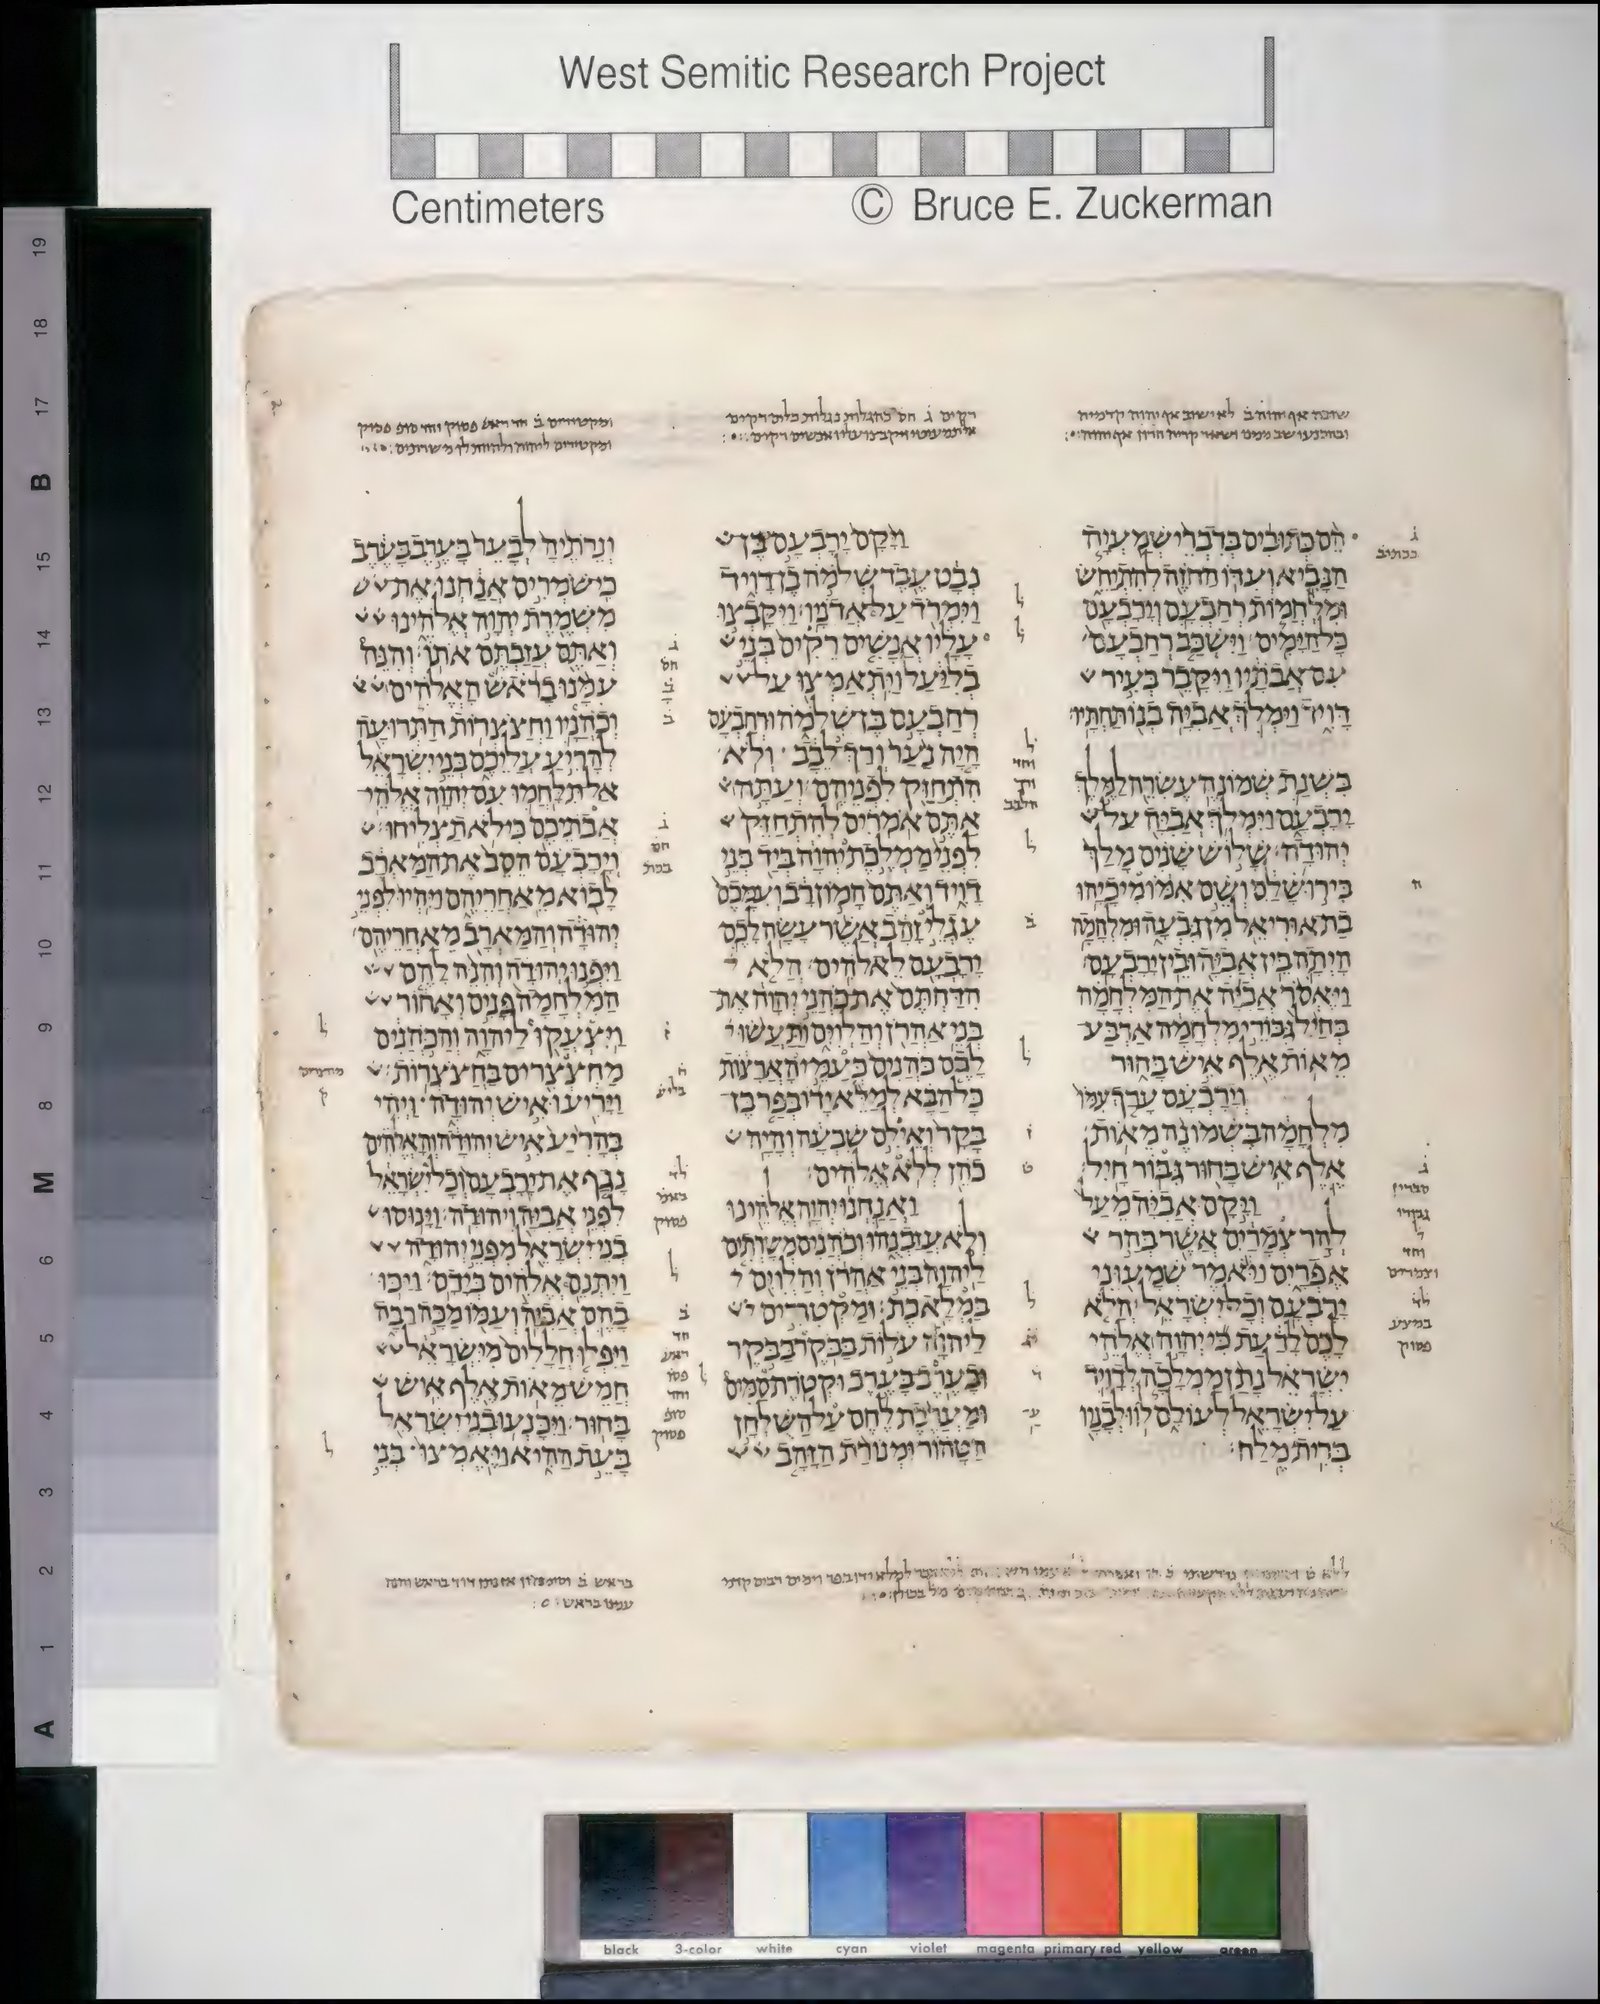 West Semitic Research Project
Centimeters © Bruce E. Zuckerman
שובה אף יהוה ב לא ישוב אף יהוה קדמייה
ובהכנעו שב ממנו ושאר קריה חרון אף יהוה
רקים ג חס
ויתקבצו עליו אנשים רקים
ומקטורים ב חד ראש פסוק וחד סופ פסוק
ומקטרים ליהוה
הֵם כְּתוּבִים בְּדִבְרֵי שְׁמַעְיָה
הַנָּבִיא וְעִדּוֹ הַחֹזֶה לְהִתְיַחֵשׂ
וּמִלְחֲמוֹת רְחַבְעָם וְיָרָבְעָם
כָּל הַיָּמִים׃ וַיִּשְׁכַּב רְחַבְעָם
עִם אֲבֹתָיו וַיִּקָּבֵר בְּעִיר
דָּוִיד וַיִּמְלֹךְ אֲבִיָּה בְנוֹ תַּחְתָּיו׃
בִּשְׁנַת שְׁמוֹנֶה עֶשְׂרֵה לַמֶּלֶךְ
יָרָבְעָם וַיִּמְלֹךְ אֲבִיָּה עַל
יְהוּדָה׃ שָׁלוֹשׁ שָׁנִים מָלַךְ
בִּירוּשָׁלִַם וְשֵׁם אִמּוֹ מִיכָיָהוּ
בַת אוּרִיאֵל מִן גִּבְעָה וּמִלְחָמָה
הָיְתָה בֵּין אֲבִיָּה וּבֵין יָרָבְעָם׃
וַיֶּאְסֹר אֲבִיָּה אֶת הַמִּלְחָמָה
בְּחַיִל גִּבּוֹרֵי מִלְחָמָה אַרְבַּע
מֵאוֹת אֶלֶף אִישׁ בָּחוּר
וְיָרָבְעָם עָרַךְ עִמּוֹ
מִלְחָמָה בִּשְׁמוֹנֶה מֵאוֹת
אֶלֶף אִישׁ בָּחוּר גִּבּוֹר חָיִל׃
וַיָּקָם אֲבִיָּה מֵעַל
לְהַר צְמָרַיִם אֲשֶׁר בְּהַר
אֶפְרָיִם וַיֹּאמֶר שְׁמָעוּנִי
יָרָבְעָם וְכָל יִשְׂרָאֵל׃ הֲלֹא
לָכֶם לָדַעַת כִּי יְהוָה אֱלֹהֵי
יִשְׂרָאֵל נָתַן מַמְלָכָה לְדָוִיד
עַל יִשְׂרָאֵל לְעוֹלָם לוֹ וּלְבָנָיו
בְּרִית מֶלַח׃
וַיָּקָם יָרָבְעָם בֶּן
נְבָט עֶבֶד שְׁלֹמֹה בֶן דָּוִיד
וַיִּמְרֹד עַל אֲדֹנָיו׃ וַיִּקָּבְצוּ
עָלָיו אֲנָשִׁים רֵקִים בְּנֵי
בְלִיַּעַל וַיִּתְאַמְּצוּ עַל
רְחַבְעָם בֶּן שְׁלֹמֹה וּרְחַבְעָם
הָיָה נַעַר וְרַךְ לֵבָב וְלֹא
הִתְחַזַּק לִפְנֵיהֶם׃ וְעַתָּה
אַתֶּם אֹמְרִים לְהִתְחַזֵּק
לִפְנֵי מַמְלֶכֶת יְהוָה בְּיַד בְּנֵי
דָוִיד וְאַתֶּם הָמוֹן רָב וְעִמָּכֶם
עֶגְלֵי זָהָב אֲשֶׁר עָשָׂה לָכֶם
יָרָבְעָם לֵאלֹהִים׃ הֲלֹא
הִדַּחְתֶּם אֶת כֹּהֲנֵי יְהוָה אֶת
בְּנֵי אַהֲרֹן וְהַלְוִיִּם וַתַּעֲשׂוּ
לָכֶם כֹּהֲנִים כְּעַמֵּי הָאֲרָצוֹת
כָּל הַבָּא לְמַלֵּא יָדוֹ בְּפַר בֶּן
בָּקָר וְאֵילִם שִׁבְעָה וְהָיָה
כֹהֵן לְלֹא אֱלֹהִים׃
וַאֲנַחְנוּ יְהוָה אֱלֹהֵינוּ
וְלֹא עֲזַבְנֻהוּ וְכֹהֲנִים מְשָׁרְתִים
לַיהוָה בְּנֵי אַהֲרֹן וְהַלְוִיִּם
בַּמְלָאכֶת׃ וּמַקְטִרִים
לַיהוָה עֹלוֹת בַּבֹּקֶר בַּבֹּקֶר
וּבָעֶרֶב בָּעֶרֶב וּקְטֹרֶת סַמִּים
וּמַעֲרֶכֶת לֶחֶם עַל הַשֻּׁלְחָן
הַטָּהוֹר וּמְנוֹרַת הַזָּהָב
וְנֵרֹתֶיהָ לְבָעֵר בָּעֶרֶב בָּעֶרֶב
כִּי שֹׁמְרִים אֲנַחְנוּ אֶת
מִשְׁמֶרֶת יְהוָה אֱלֹהֵינוּ
וְאַתֶּם עֲזַבְתֶּם אֹתוֹ׃ וְהִנֵּה
עִמָּנוּ בָרֹאשׁ הָאֱלֹהִים
וְכֹהֲנָיו וַחֲצֹצְרוֹת הַתְּרוּעָה
לְהָרִיעַ עֲלֵיכֶם בְּנֵי יִשְׂרָאֵל
אַל תִּלָּחֲמוּ עִם יְהוָה אֱלֹהֵי
אֲבֹתֵיכֶם כִּי לֹא תַצְלִיחוּ׃
וְיָרָבְעָם הֵסֵב אֶת הַמַּאְרָב
לָבוֹא מֵאַחֲרֵיהֶם וַיִּהְיוּ לִפְנֵי
יְהוּדָה וְהַמַּאְרָב מֵאַחֲרֵיהֶם׃
וַיִּפְנוּ יְהוּדָה וְהִנֵּה לָהֶם
הַמִּלְחָמָה פָּנִים וְאָחוֹר
וַיִּצְעֲקוּ לַיהוָה וְהַכֹּהֲנִים
מַחְצֹצְרִים בַּחֲצֹצְרוֹת׃
וַיָּרִיעוּ אִישׁ יְהוּדָה וַיְהִי
בְּהָרִיעַ אִישׁ יְהוּדָה וְהָאֱלֹהִים
נָגַף אֶת יָרָבְעָם וְכָל יִשְׂרָאֵל
לִפְנֵי אֲבִיָּה וִיהוּדָה׃ וַיָּנוּסוּ
בְנֵי יִשְׂרָאֵל מִפְּנֵי יְהוּדָה
וַיִּתְּנֵם אֱלֹהִים בְּיָדָם׃ וַיַּכּוּ
בָהֶם אֲבִיָּה וְעַמּוֹ מַכָּה רַבָּה
וַיִּפְּלוּ חֲלָלִים מִיִּשְׂרָאֵל
חֲמֵשׁ מֵאוֹת אֶלֶף אִישׁ
בָּחוּר׃ וַיִּכָּנְעוּ בְנֵי יִשְׂרָאֵל
בָּעֵת הַהִיא וַיֶּאֶמְצוּ בְּנֵי
בראש ב
עמנו בראש
19
18
17
B
15
14
13
12
11
10
9
8
M
6
5
4
3
2
1
A
black 3-color white cyan violet magenta primary red yellow green